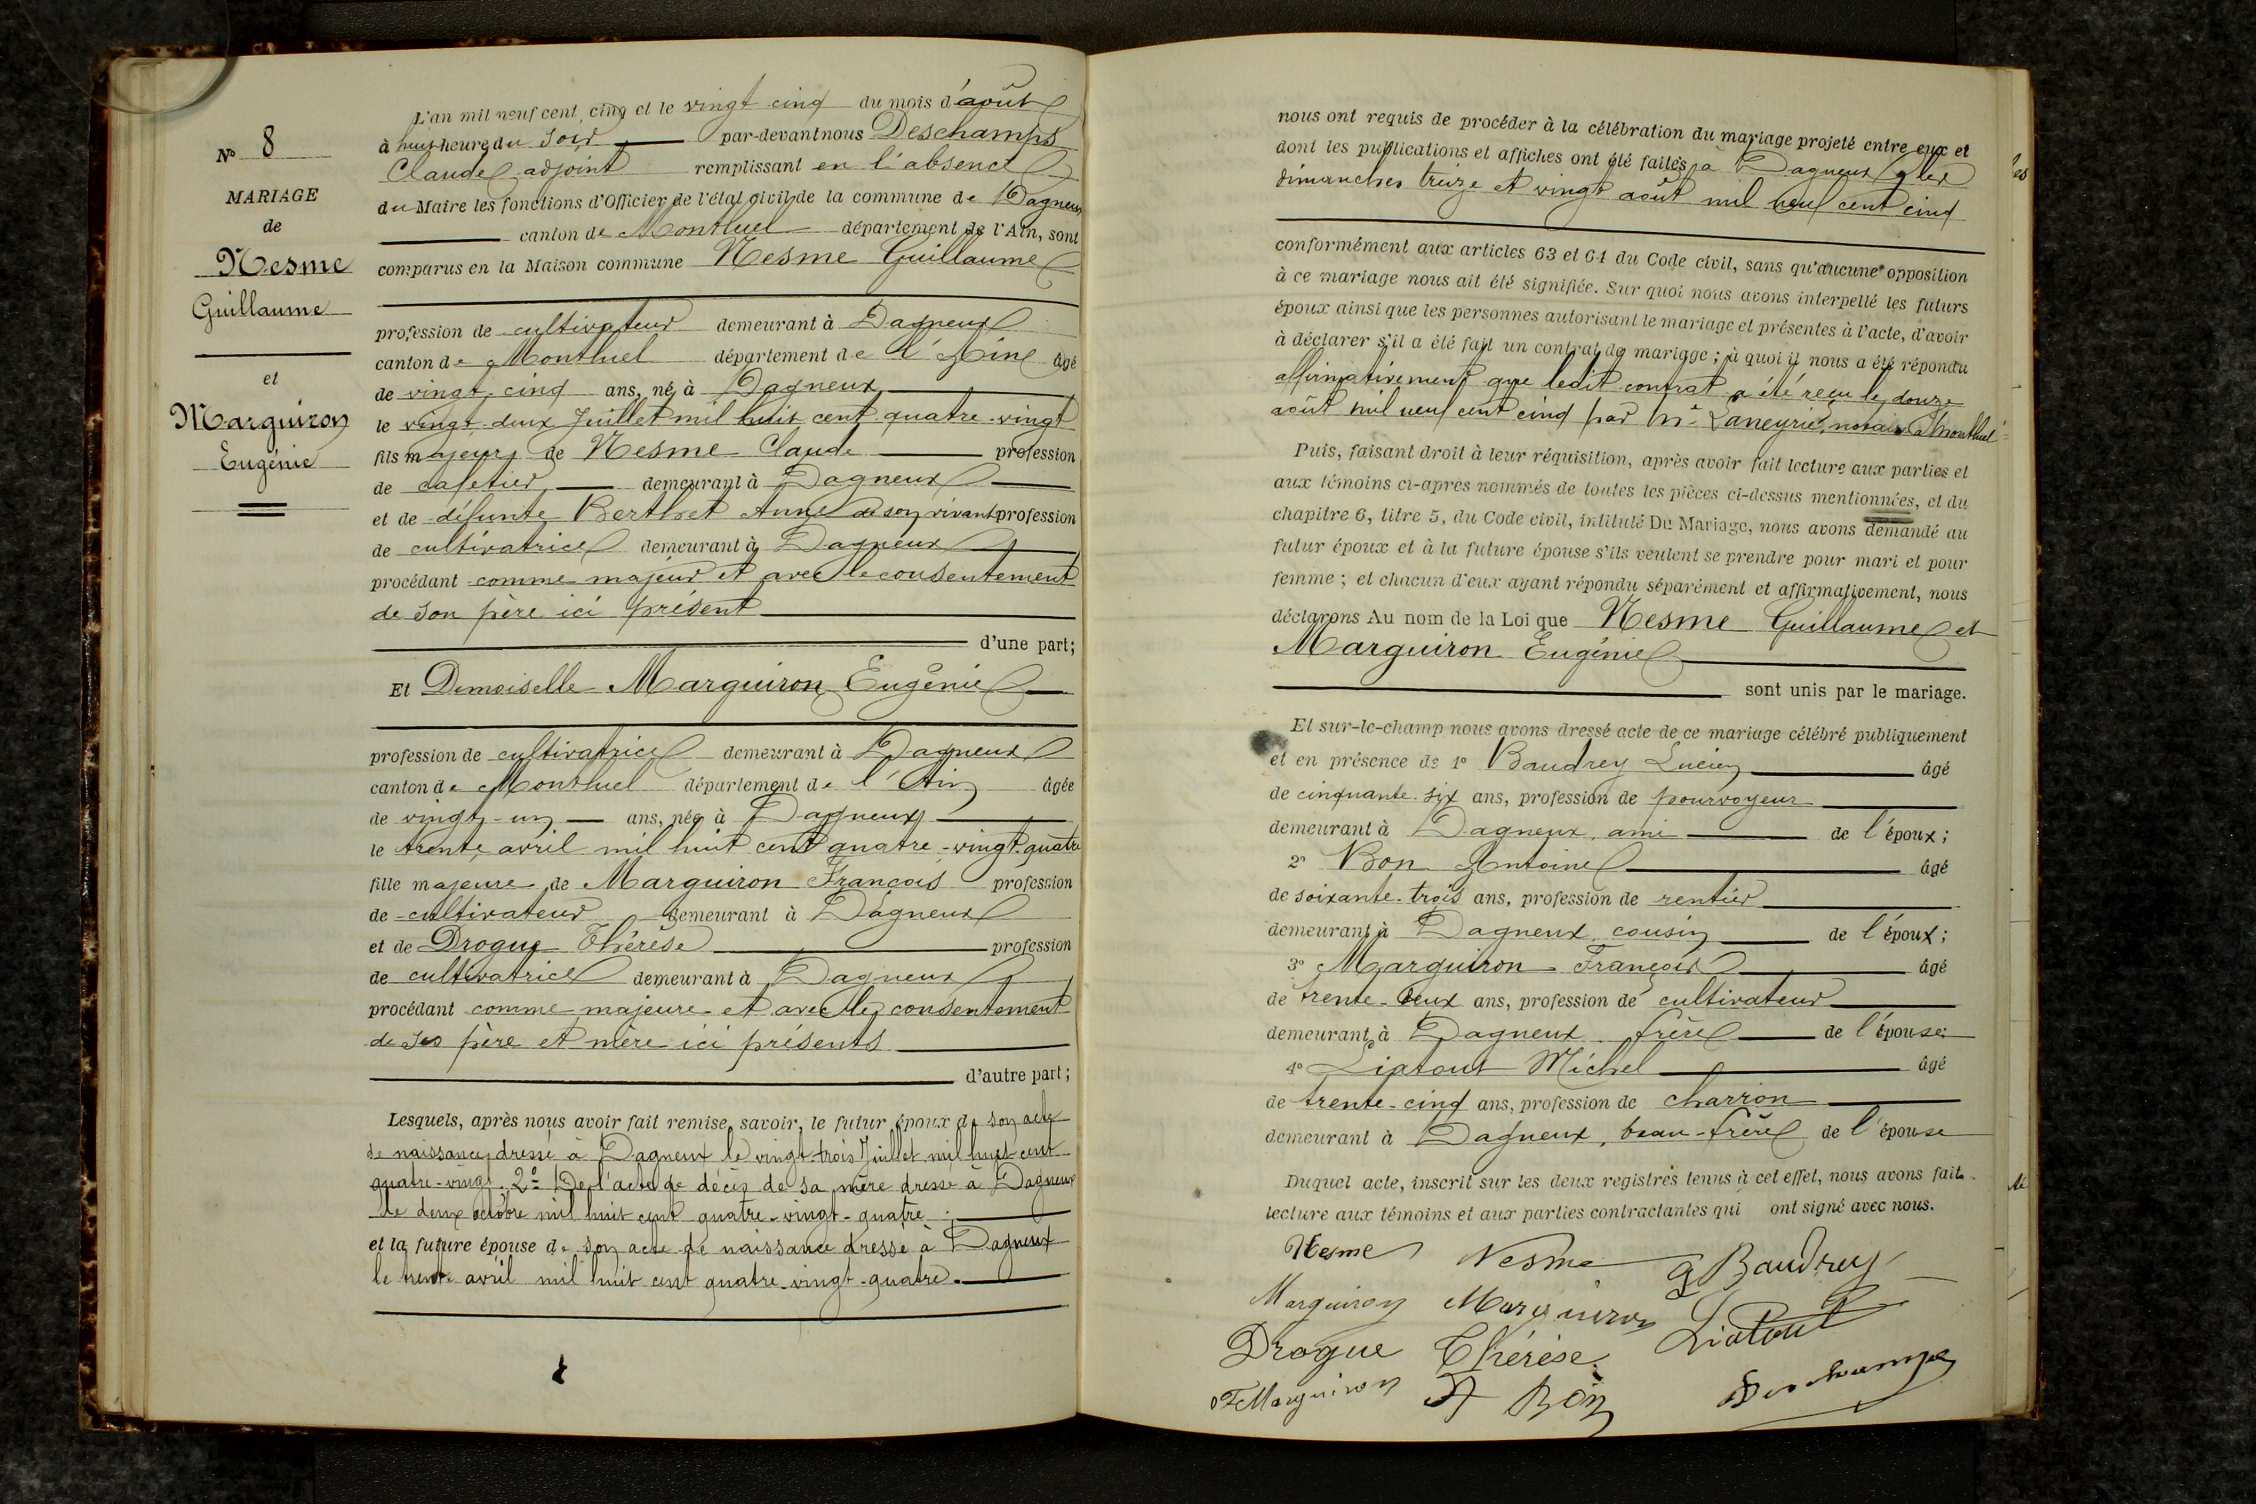 N° 8
MARIAGE
de
Nesme
Guillaume
et
Marguiron
Eugénie
L'an mil neuf cent cinq et le vingt cinq du mois d'août
à huit heure du soir par-devant nous Deschamps
Claude adjoint remplissant en l'absence
du Maire les fonctions d'Officier de l'état civil de la commune de Dagneux
canton de Montluel département de l'Ain, sont
comparus en la Maison commune Nesme Guillaume
profession de cultivateur demeurant à Dagneux
canton de Montluel département de l'Ain âgé
de vingt cinq ans, né à Dagneux
le vingt-deux Juillet mil huit cent quatre-vingt
fils majeur de Nesme Claude profession
de cafetier demeurant à Dagneux
et de défunte Berthet Anne de son vivant profession
de cultivatrice demeurant à Dagneux
procédant comme majeur et avec le consentement
de son père ici présent
d'une part;
Et Demoiselle Marguiron Eugénie
profession de cultivatrice demeurant à Dagneux
canton de Montluel département de l'Ain âgée
de vingt-un ans, née à Dagneux
le trente avril mil huit cent quatre-vingt-quatre
fille majeure de Marguiron François profession
de cultivateur demeurant à Dagneux
et de Drogue Thérèse profession
de cultivatrice demeurant à Dagneux
procédant comme majeure et avec le consentement
de ses père et mère ici présents
d'autre part;
Lesquels, après nous avoir fait remise, savoir, le futur époux de son acte
de naissance dressé à Dagneux le vingt-trois Juillet mil huit cent
quatre-vingt. 2° De l'acte de décès de sa mère dressé à Dagneux
le deux octobre mil huit cent quatre-vingt-quatre
et la future épouse de son acte de naissance dressé à Dagneux
le trente avril mil huit cent quatre-vingt-quatre.
nous ont requis de procéder à la célébration du mariage projeté entre eux et
dont les publications et affiches ont été faites à Dagneux les
dimanches treize et vingt août mil neuf cent cinq
conformément aux articles 63 et 64 du Code civil, sans qu'aucune opposition
à ce mariage nous ait été signifiée. Sur quoi nous avons interpellé les futurs
époux ainsi que les personnes autorisant le mariage et présentes à l'acte, d'avoir
à déclarer s'il a été fait un contrat de mariage; à quoi il nous a été répondu
affirmativement que ledit contrat a été reçu le douze
août mil neuf cent cinq par Me Laneyrie, notaire à Montluel
Puis, faisant droit à leur réquisition, après avoir fait lecture aux parties et
aux témoins ci-après nommés de toutes les pièces ci-dessus mentionnées, et du
chapitre 6, titre 5, du Code civil, intitulé Du Mariage, nous avons demandé au
futur époux et à la future épouse s'ils veulent se prendre pour mari et pour
femme; et chacun d'eux ayant répondu séparément et affirmativement, nous
déclarons Au nom de la Loi que Nesme Guillaume et
Marguiron Eugénie
sont unis par le mariage.
Et sur-le-champ nous avons dressé acte de ce mariage célébré publiquement
et en présence de 1° Baudrey Lucien âgé
de cinquante-six ans, profession de pourvoyeur
demeurant à Dagneux, ami de l'époux;
2° Bon Antoine âgé
de soixante-trois ans, profession de rentier
demeurant à Dagneux, cousin de l'époux;
3° Marguiron François âgé
de trente-deux ans, profession de cultivateur
demeurant à Dagneux frère de l'épouse;
4° Liatout Michel âgé
de trente-cinq ans, profession de charron
demeurant à Dagneux, beau-frère de l'épouse
Duquel acte, inscrit sur les deux registres tenus à cet effet, nous avons fait
lecture aux témoins et aux parties contractantes qui ont signé avec nous.
Nesme Nesme Baudrey
Marguiron Marguiron Liatout
Drogue Thérèse
F Marguiron A Bon Deschamps